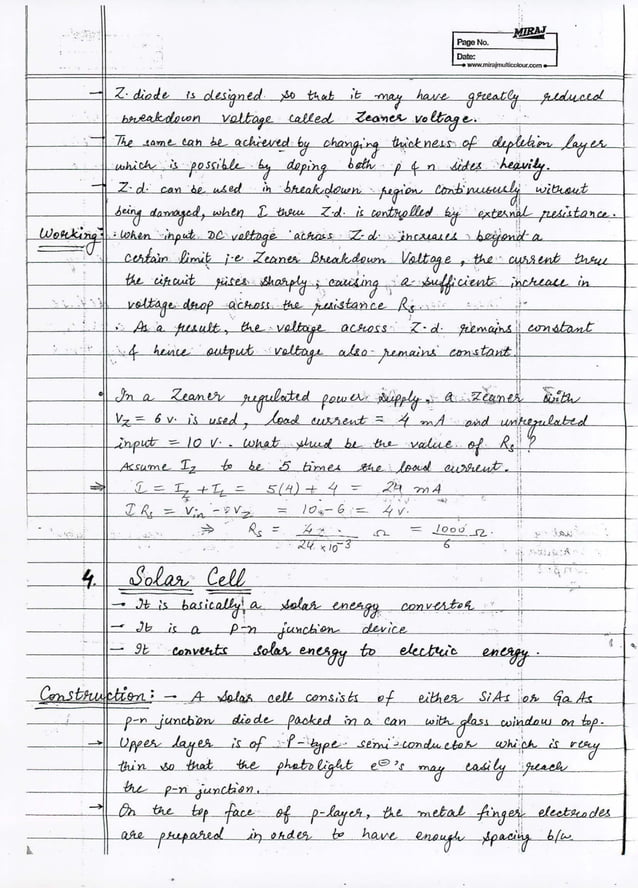 MIRAJ
Page No.
Date:
www.mirajmulticolour.com
→ Z. diode is designed so that it may have greatly reduced
breakdown voltage called Zeaner voltage.
→ The same can be achieved by changing thickness of depletion layer
which is possible by doping both p & n sides heavily.
→ Z.d. can be used in breakdown region continuously without
being damaged, when I thru Z.d. is controlled by external resistance.
Working: When input DC voltage across Z.d. increases beyond a
certain limit i.e Zeaner Breakdown Voltage, the current thru
the circuit rises sharply; causing a sufficient increase in
voltage drop across the resistance Rs.
. As a result, the voltage across Z.d. remains constant
& hence output voltage also remains constant.
• In a Zeaner regulated power supply, a zeaner with
Vz = 6 v. is used, load current = 4 mA and unregulated
input = 10 V. . What shud be the value of Rs ?
Assume Iz to be 5 times the load current.
⇒ I = Iz + IL = 5(4) + 4 = 24 mA
I Rs = Vin - Vz = 10 - 6 = 4 v.
⇒ Rs = 4 / 24 × 10⁻³ Ω = 1000 / 6 Ω.
4. Solar Cell
→ It is basically a solar energy convertor
→ It is a p-n junction device
→ It converts solar energy to electric energy.
Construction: → A solar cell consists of either SiAs or GaAs
p-n junction diode packed in a can with glass window on top.
→ Upper layer is of P-type semi-conductor which is very
thin so that the photolight e⊖'s may easily reach
the p-n junction.
→ On the top face of p-layer, the metal finger electrodes
are prepared in order to have enough spacing b/w